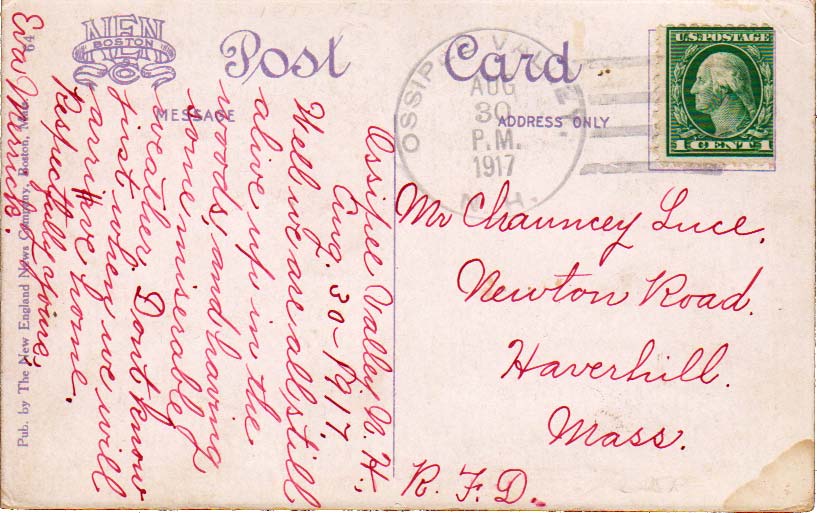 NEN
BOSTON
64
Post Card
MESSAGE
ADDRESS ONLY
U.S. POSTAGE
1 CENT 1
OSSIPEE VALLEY
AUG
30
P.M.
1917
N.H.
Ossipee Valley N. H.
Aug. 30-1917.
Well we are all still
alive up in the
woods, and having
some miserable
weather. Dont know
just when we will
arrive home.
Respectfully yours,
Eva Merrick.
Mr Chauncey Luce,
Newton Road.
Haverhill.
Mass.
R. F. D.
Pub. by The New England News Company, Boston, Mass.